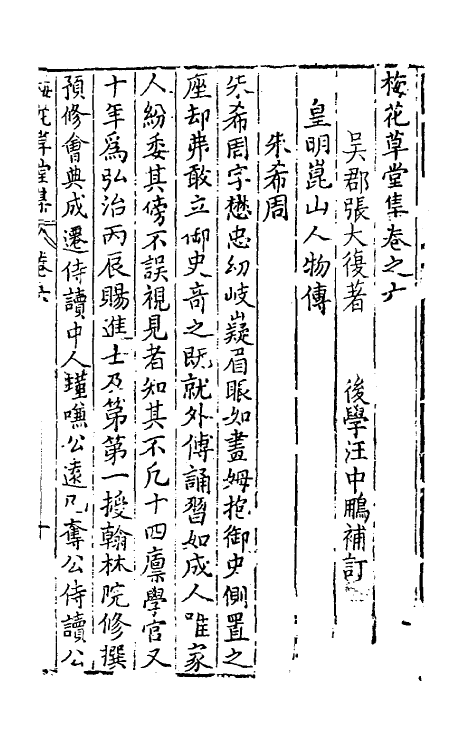 梅花草堂集卷之六
吳郡張大復著　後學汪中鵬補訂
皇明崑山人物傳
朱希周
朱希周字懋忠幼岐嶷眉眼如畫姆抱御史側置之
座却弗敢立御史奇之既就外傅誦習如成人唯家
人紛委其傍不誤視見者知其不凡十四廪學官又
十年爲弘治丙辰賜進士及第第一授翰林院修撰
預修會典成遷侍讀中人瑾嗛公遠凡奪公侍讀公
梅花草堂集　卷六　一